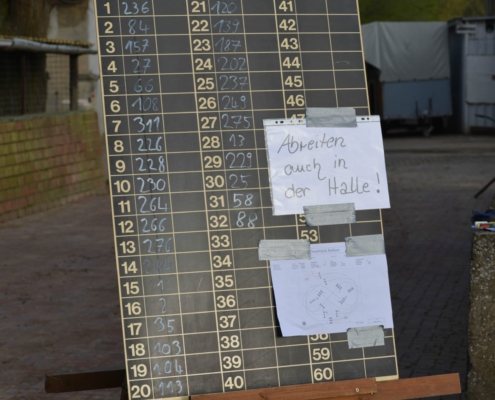 1 236
2 84
3 157
4 27
5 66
6 108
7 311
8 226
9 228
10 230
11 264
12 266
13 276
14
15 1
16 2
17 35
18 103
19 104
20 113
21 120
22 139
23 187
24 202
25 237
26 249
27 275
28 13
29 229
30 25
31 58
32 88
33
34
35
36
37
38
39
40
41
42
43
44
45
46
53
58
59
60
Abreiten
auch in
der Halle!